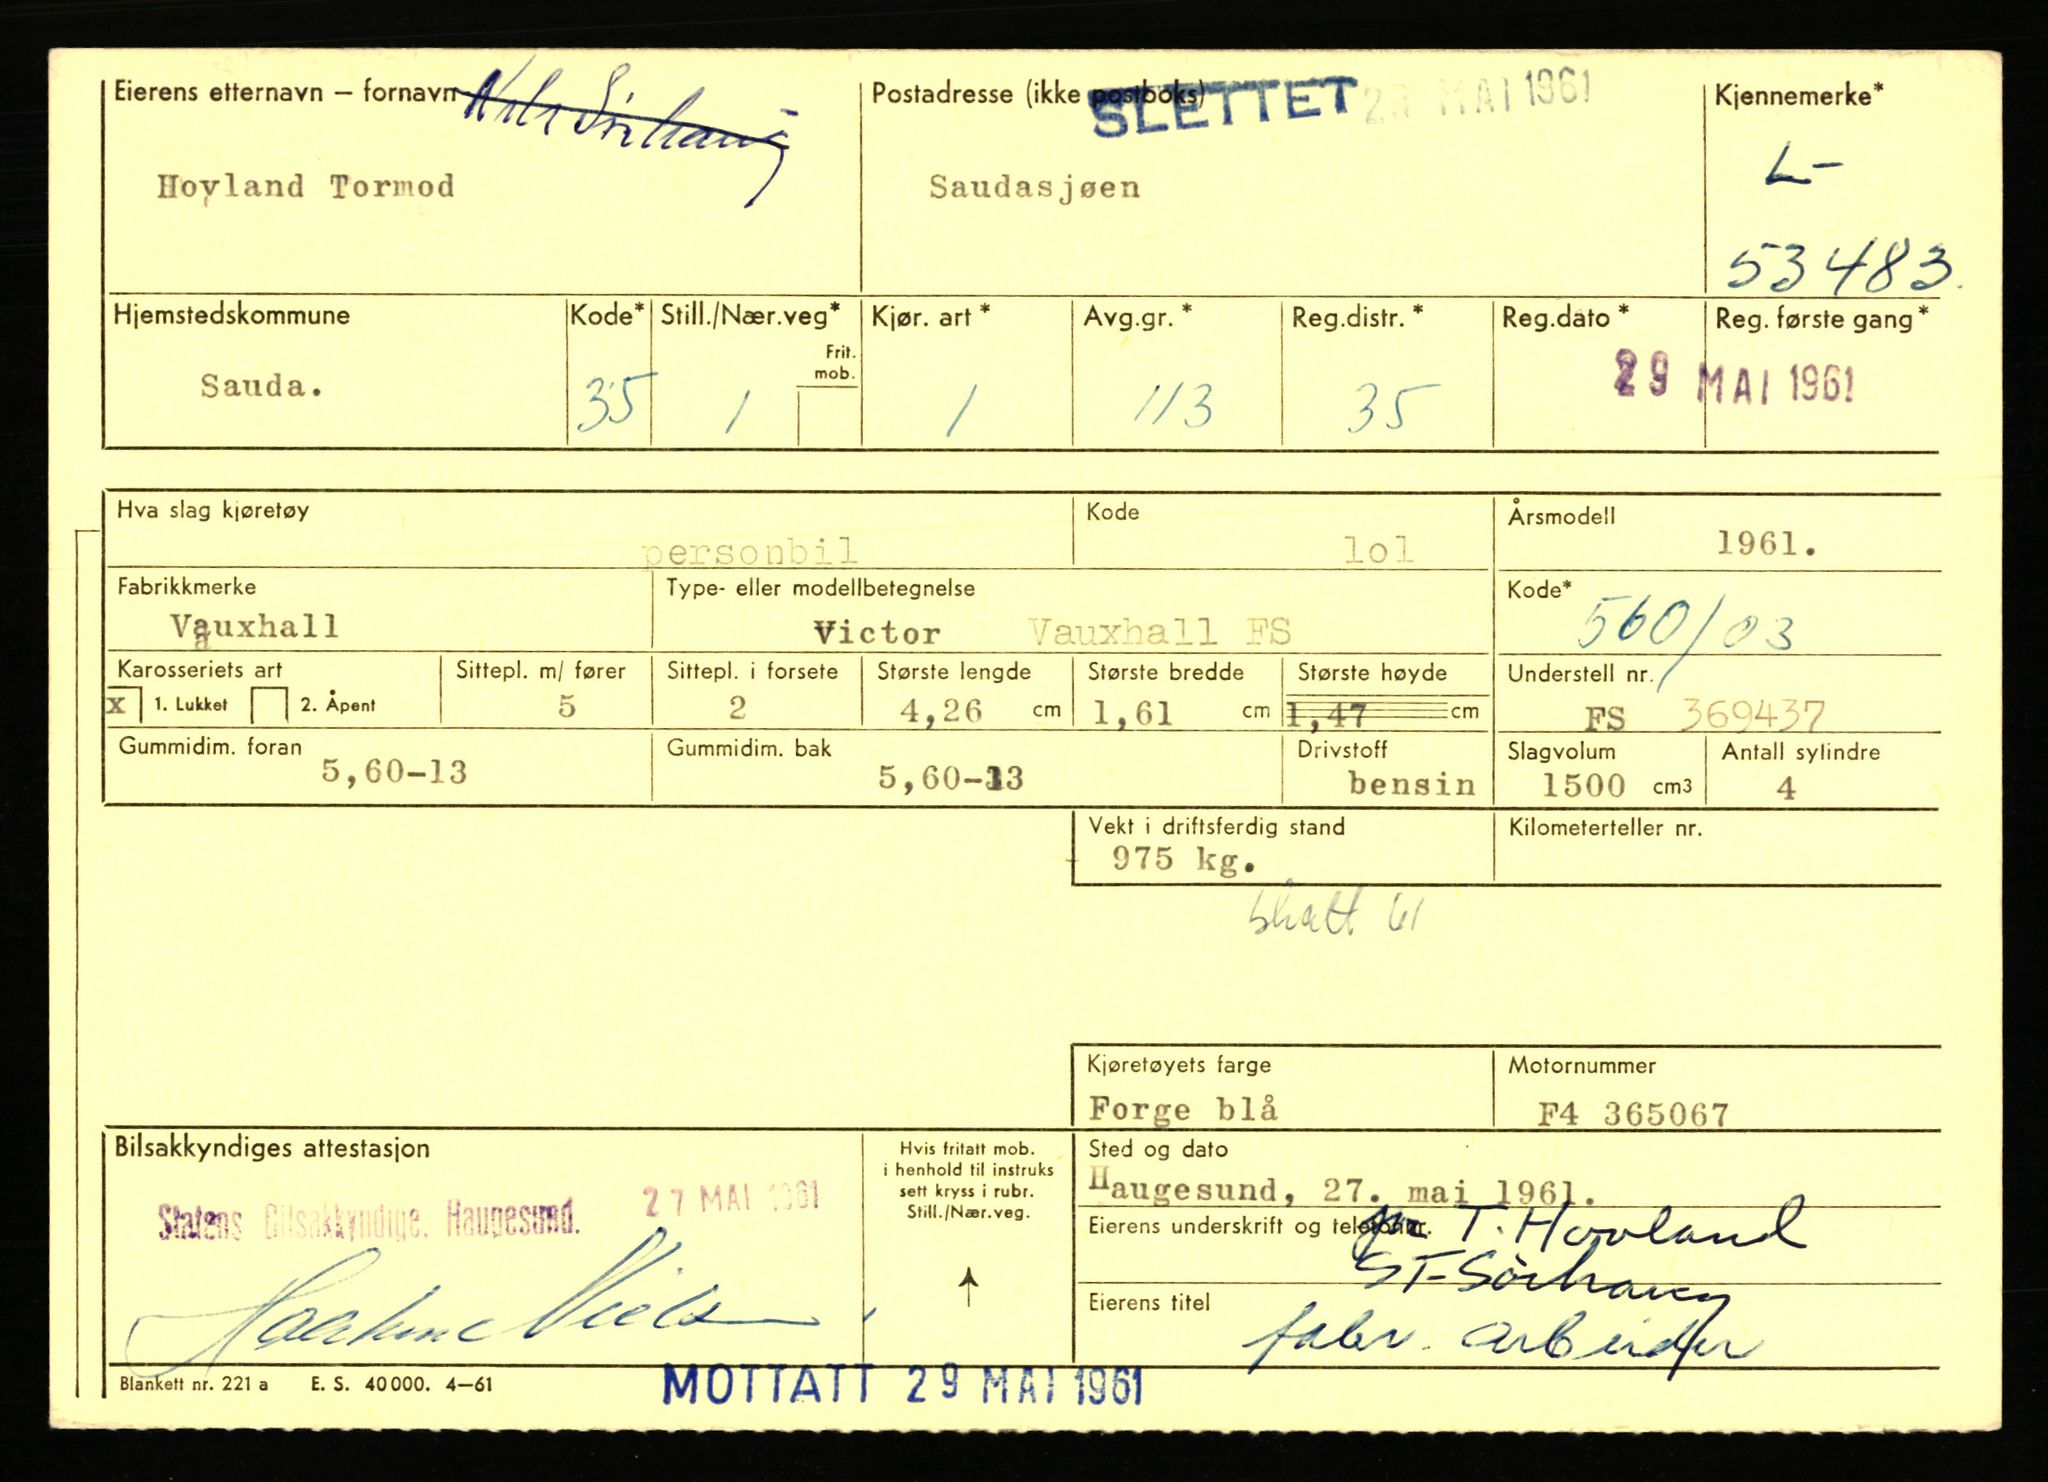 Eierens etternavn – fornavn
Hovland Tormod
Postadresse (ikke postboks)
SLETTET 29 MAI 1961
Saudasjøen
Kjennemerke*
L-
53483.
Hjemstedskommune
Sauda.
Kode*
35
Still./Nær.veg*
Frit. mob.
1
Kjør. art *
1
Avg.gr. *
113
Reg.distr. *
35
Reg.dato *
Reg. første gang *
29 MAI 1961
Hva slag kjøretøy
personbil
Kode
lol
Årsmodell
1961.
Fabrikkmerke
Vauxhall
Type- eller modellbetegnelse
Victor Vauxhall FS
Kode*
560/03
Karosseriets art
x 1. Lukket 2. Åpent
Sittepl. m/ fører
5
Sittepl. i forsete
2
Største lengde
4,26 cm
Største bredde
1,61 cm
Største høyde
1,47 cm
Understell nr.
FS 369437
Gummidim. foran
5,60-13
Gummidim. bak
5,60-13
Drivstoff
bensin
Slagvolum
1500 cm3
Antall sylindre
4
Vekt i driftsferdig stand
975 kg.
Kilometerteller nr.
skatt 61
Kjøretøyets farge
Forge blå
Motornummer
F4 365067
Bilsakkyndiges attestasjon
Statens Bilsakkyndige, Haugesund. 27 MAI 1961
Hvis fritatt mob.
i henhold til instruks
sett kryss i rubr.
Still./Nær.veg.
Sted og dato
Haugesund, 27. mai 1961.
Eierens underskrift og telefonnr.
T. Hovland
ST-Sörhaug
Eierens titel
fabr. arbeider
Blankett nr. 221 a E. S. 40 000. 4–61
MOTTATT 29 MAI 1961